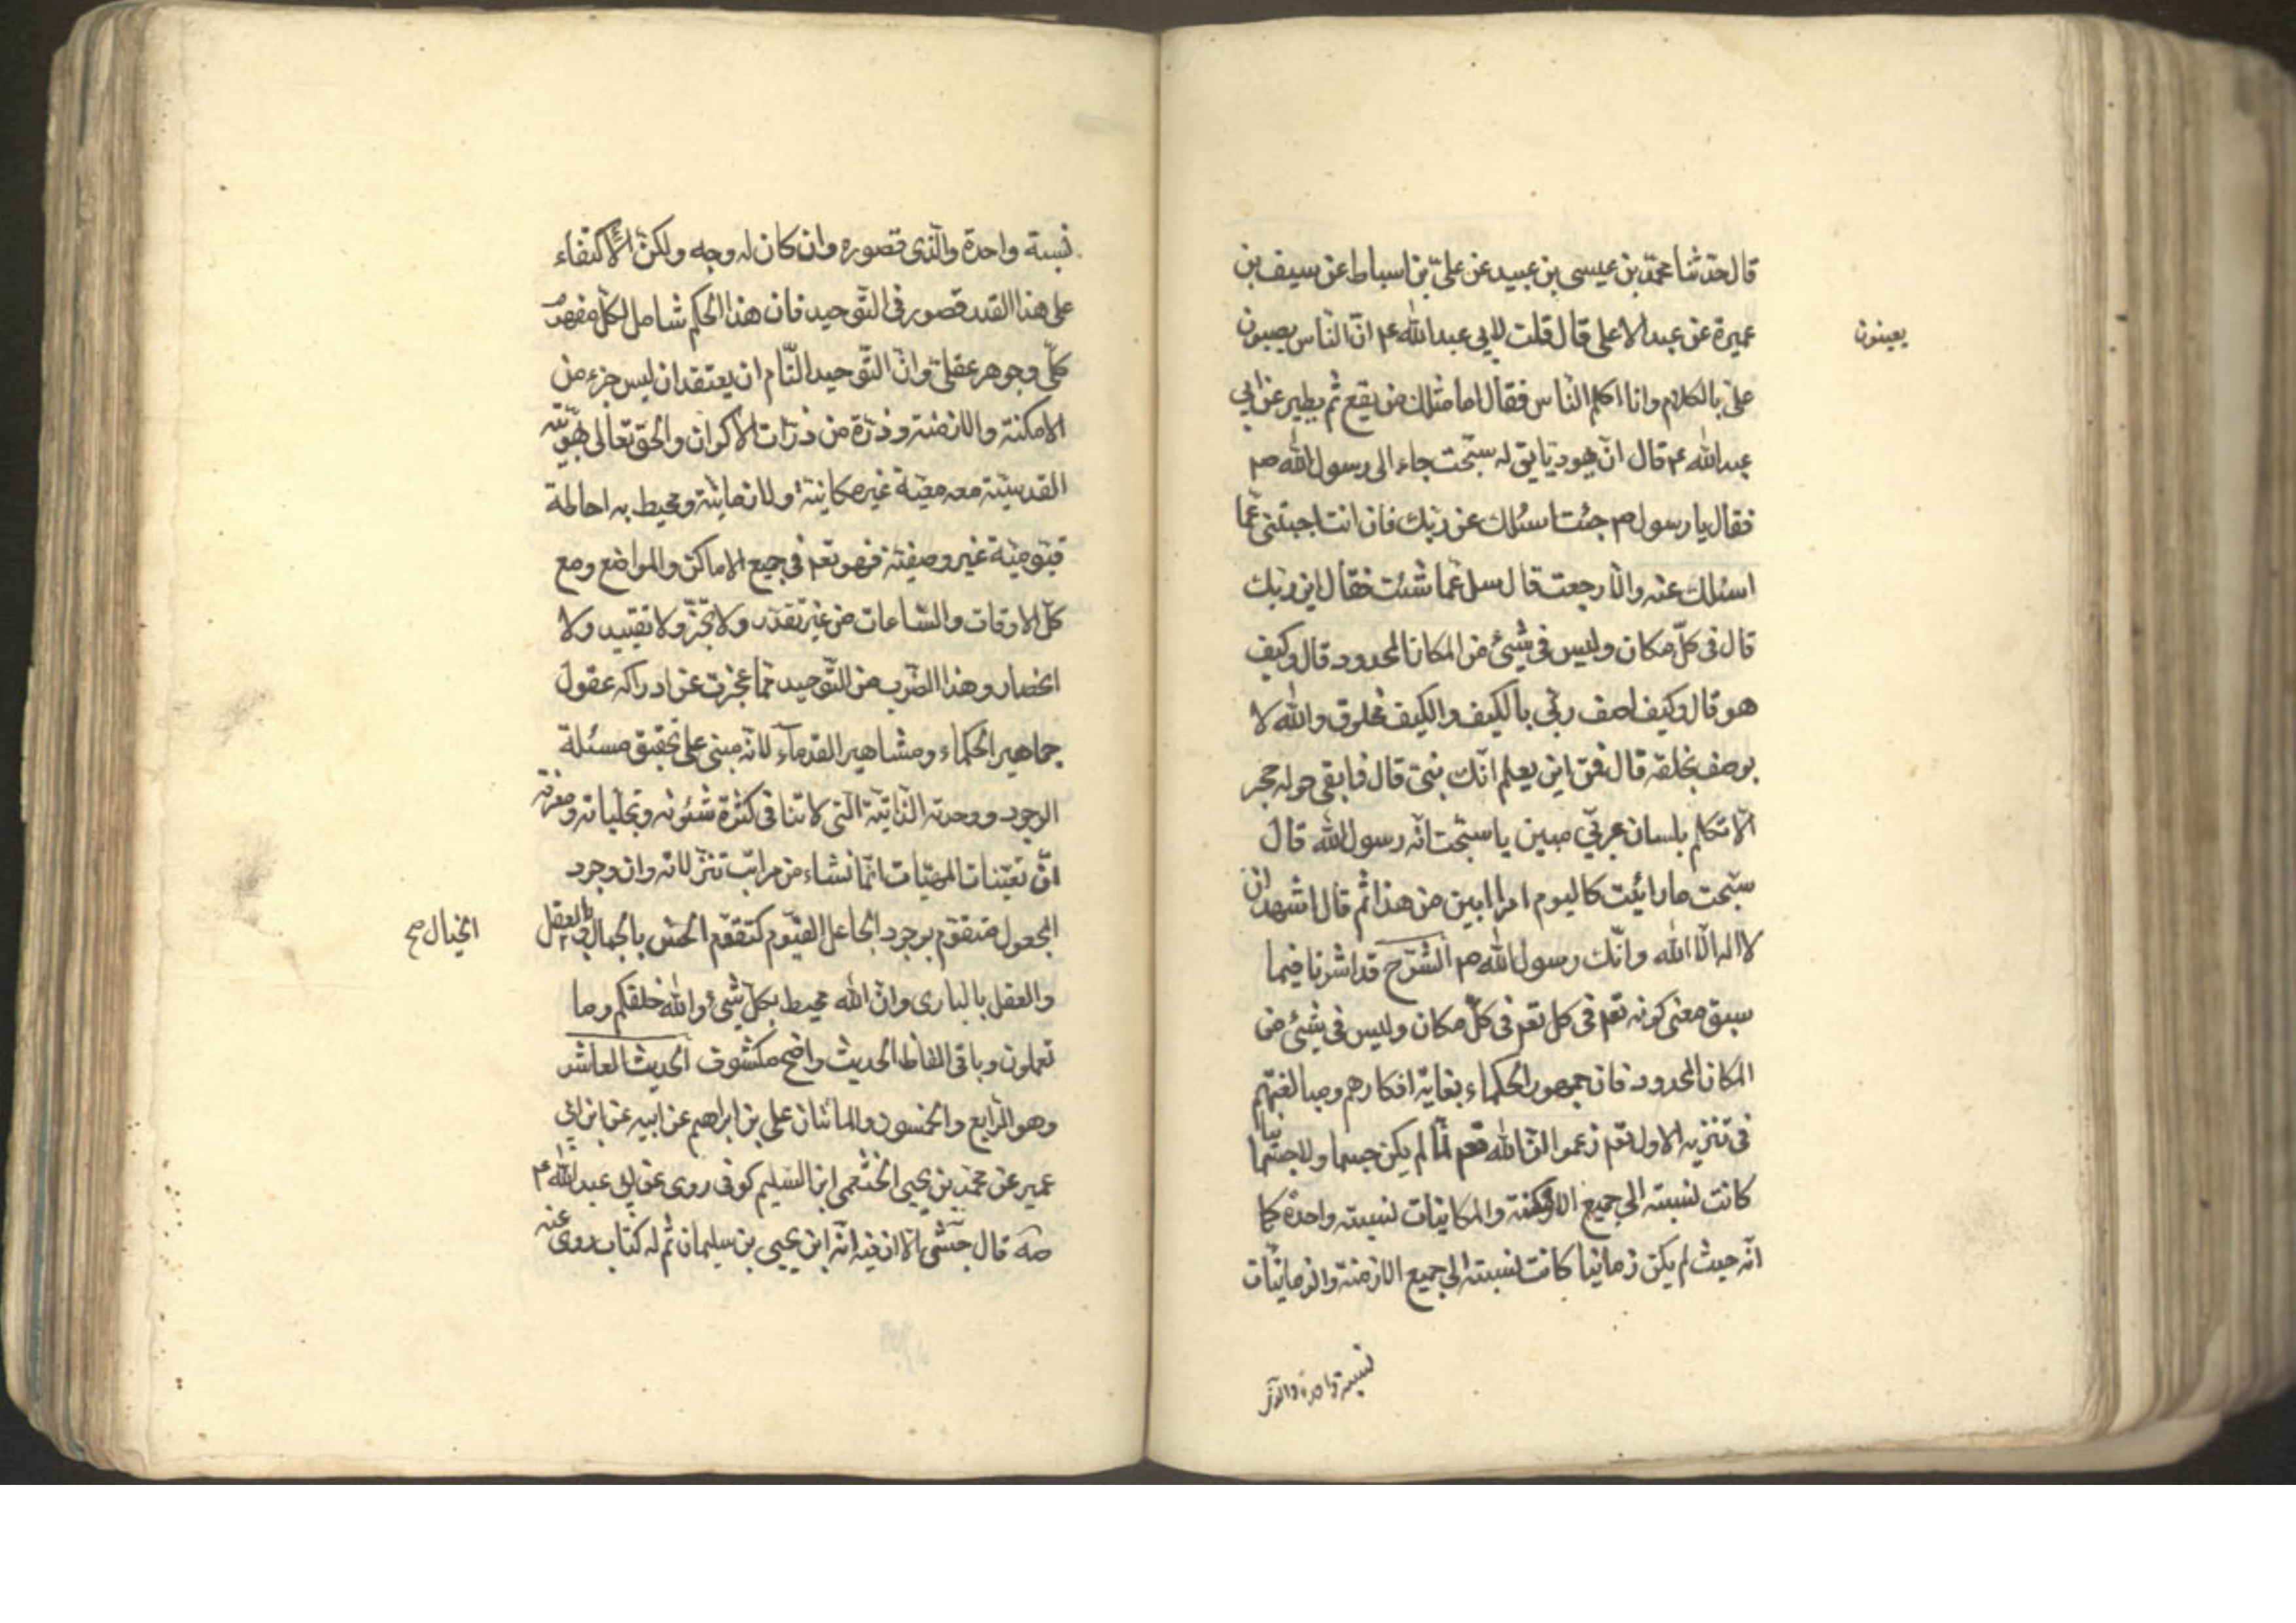 قال حدثنا محمد بن عيسى بن عبيد عن علي بن اسباط عن سيف بن
عميرة عن عبد الاعلى قال قلت لابي عبد الله ع انّ الناس يعيبون
يعينون
علىّ بالكلام وانا اكلم الناس فقال اما مثلك من يقع ثم يطير عن ابي
عبد الله ع قال انّ يهوديّا يق له سبّحت جاء الى رسول الله ص
فقال يا رسول ص جئت اسئلك عن ربّك فان انت اجبتنى عمّا
اسئلك عنه والّا رجعت قال سل عمّا شئت فقال اين ربّك
قال فى كلّ مكان وليس فى شيئ من المكان المحدود قال وكيف
هو قال وكيف اصف ربّي بالكيف والكيف مخلوق والله لا
يوصف بخلقه قال فمن اين يعلم انّك نبيّ قال فما بقى حوله حجر
الّا تكلم بلسان عربيّ مبين يا سبّحت انّه رسول الله قال
سبّحت ما رايئت كاليوم امرا ابين من هذا ثم قال اشهد ان
لا اله الّا الله وانّك رسول الله ص الشرح قد اشرنا فيما
سبق معنى كونه تعم فى كل تعم فى كلّ مكان وليس فى شيئ من
المكان المحدود فان جمهور الحكماء بغاية افكارهم ومبالغتهم
فى تنزيه الاول تعم زعموا انّ الله تعم لمّا لم يكن جسما ولا جسمانيا
كانت نسبته الى جميع الامكنة والمكانيات نسبته واحدة كما
انّه حيث لم يكن زمانيا كانت نسبته الى جميع الازمنة والزمانيّات
نسبة واحدة والذى
نسبة واحدة والّذى تصوره وان كان له وجه ولكنّ الاكتفاء
على هذا القدر قصور فى التّوحيد فان هذا الحكم شامل لكلّ مفهوم
كلّي وجوهر عقلىّ وانّ التّوحيد التّام ان يعتقد ان ليس جزء من
الامكنة والازمنة وذرّة من ذرّات الاكوان والحق تعالى بهويّته
القدسيّة معه معيّة غير مكانيّة ولا زمانيّة ومحيط به احاطة
قيّوميّة غير وضعيّة فهو تعم فى جميع الاماكن والمواضع ومع
كلّ الاوقات والسّاعات من غير تقدّر ولا تجزّ ولا تقييد ولا
انحصار وهذا الضّرب من التّوحيد ممّا عجزت عن ادراكه عقول
جماهير الحكماء ومشاهير القدماء لانّه مبنى على تحقيق مسئلة
الوجود ووحدته الذّاتيّة الّتى لا تنافى كثرة شئونه وتجلّياته ومعرفة
انّ تعيّنات المهيّات انّما نشاء من مراتب تنزلاته وان وجود
المجعول متقوّم بوجود الجاعل القيّوم كتقوّم الحسّ بالجمال بالعقل
الخيال صح
والعقل بالبارى وانّ الله محيط بكلّ شىء والله خلقكم وما
تعملون وباقى الفاظ الحديث واضح مكشوف الحديث العاشر
وهو الرّابع والخمسون والمائتان على بن ابراهيم عن ابيه عن ابن ابى
عمير عن محمّد بن يحيى الخثعمى ابن السّليم كوفى روى عن ابى عبد الله ع
صه قال جش الّا ان فيه انّه ابن يحيى بن سليمان ثم له كتاب روى عنه